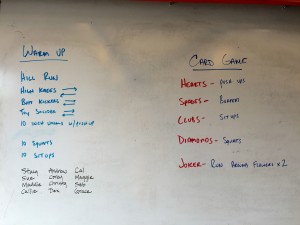 WARM UP
HILL RUN
HIGH KNEES
BUTT KICKERS
TOY SOLDIER
10 INCH WORMS W/ PUSH UP
10 SQUATS
10 SIT UPS
Steve Andrew Cal
Sue Corey Maggie
Maddie Christy Seb
Callie Dan Grace
CARD GAME
HEARTS - PUSH UPS
SPADES - BURPEES
CLUBS - SIT UPS
DIAMONDS - SQUATS
JOKER - RUN AROUND FLOWERS x2